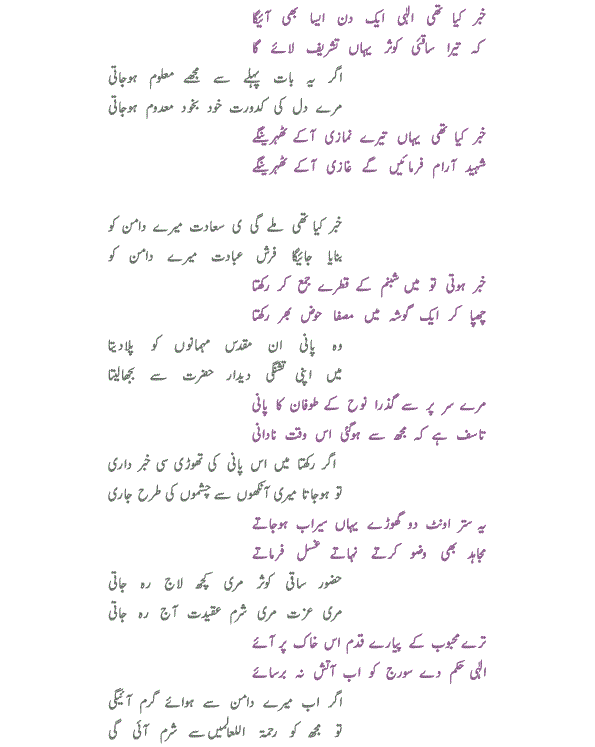 خبر کیا تھی الٰہی ایک دن ایسا بھی آئیگا
کہ تیرا ساقئی کوثر یہاں تشریف لائے گا
اگر یہ بات پہلے سے مجھے معلوم ہوجاتی
مرے دل کی کدورت خود بخود معدوم ہوجاتی
خبر کیا تھی یہاں تیرے نمازی آکے ٹھہرینگے
شہید آرام فرمائیں گے غازی آکے ٹھہرینگے
خبر کیا تھی ملے گی ی سعادت میرے دامن کو
بنایا جائیگا فرش عبادت میرے دامن کو
خبر ہوتی تو میں شبنم کے قطرے جمع کر رکھتا
چھپا کر ایک گوشہ میں مصفا حوض بھر رکھتا
وہ پانی ان مقدس مہمانوں کو پلادیتا
میں اپنی تشنگی دیدار حضرت سے بجھالیتا
مرے سر پر سے گذرا نوح کے طوفان کا پانی
تاسف ہے کہ مجھ سے ہوگئی اس وقت نادانی
اگر رکھتا میں اس پانی کی تھوڑی سی خبر داری
تو ہوجاتا میری آنکھوں سے چشموں کی طرح جاری
یہ ستر اونٹ دو گھوڑے یہاں سیراب ہوجاتے
مجاہد بھی وضو کرتے نہاتے غسل فرماتے
حضور ساقی کوثر مری کچھ لاج رہ جاتی
مری عزت مری شرم عقیدت آج رہ جاتی
ترے محبوب کے پیارے قدم اس خاک پر آئے
الٰہی حکم دے سورج کو اب آتش نہ برسائے
اگر اب میرے دامن سے ہوائے گرم آئیگی
تو مجھ کو رحمۃ اللعالمیں سے شرم آئی گی